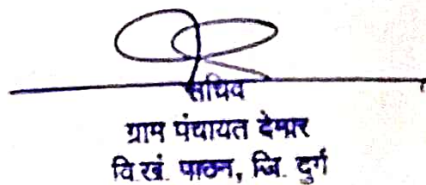 सचिव
ग्राम पंचायत देमार
वि.खं. पाटन, जि. दुर्ग